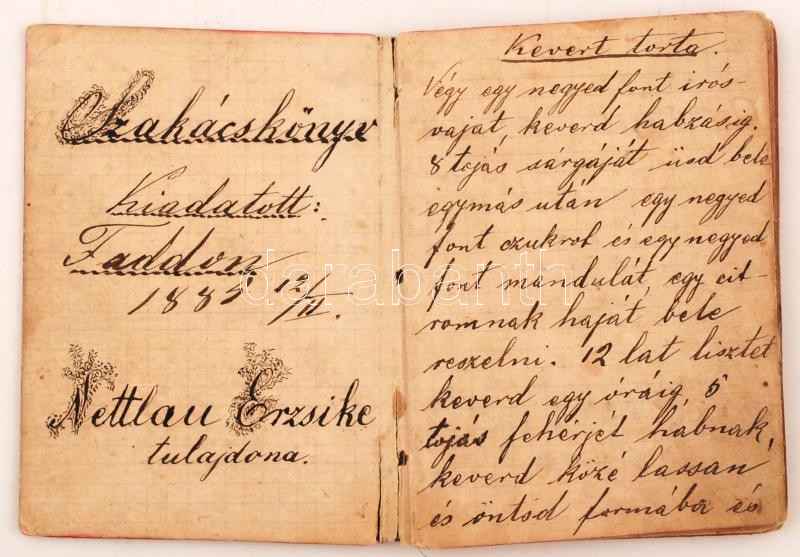 Szakácskönyv
Kiadatott:
Faddon
1885 12/II.
Nettlau Erzsike
tulajdona.
Kevert torta.
Végy egy negyed font irós-
vajat, keverd habzásig.
8 tojás sárgáját üsd bele
egymás után egy negyed
font czukrot és egy negyed
font mandulát, egy cit-
romnak haját bele
reszelni. 12 lat lisztet
keverd egy óráig, 5
tojás fehérjét habnak,
keverd közé lassan
és öntsd formába és
darabanth